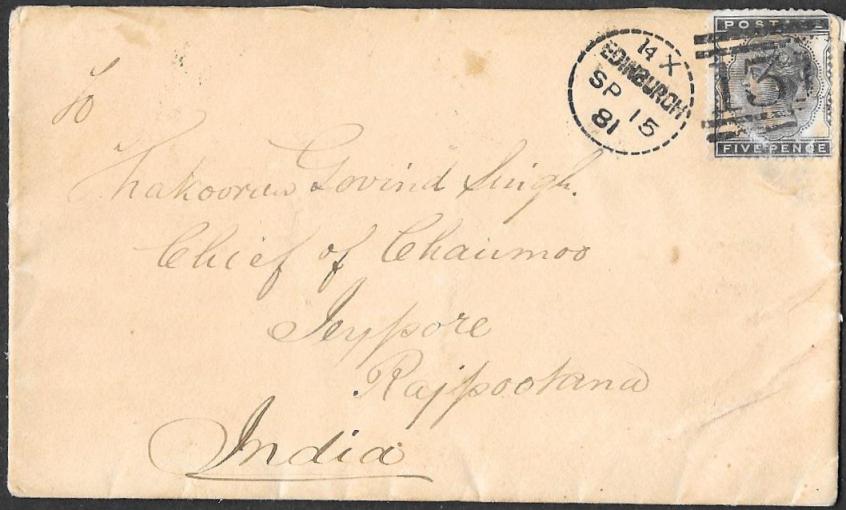 POSTAGE
131
FIVE PENCE
14 X
EDINBURGH
SP 15
81
To
Thakooraw Govind Singh.
Chief of Chaumoo
Jeypore
Rajpootana
India